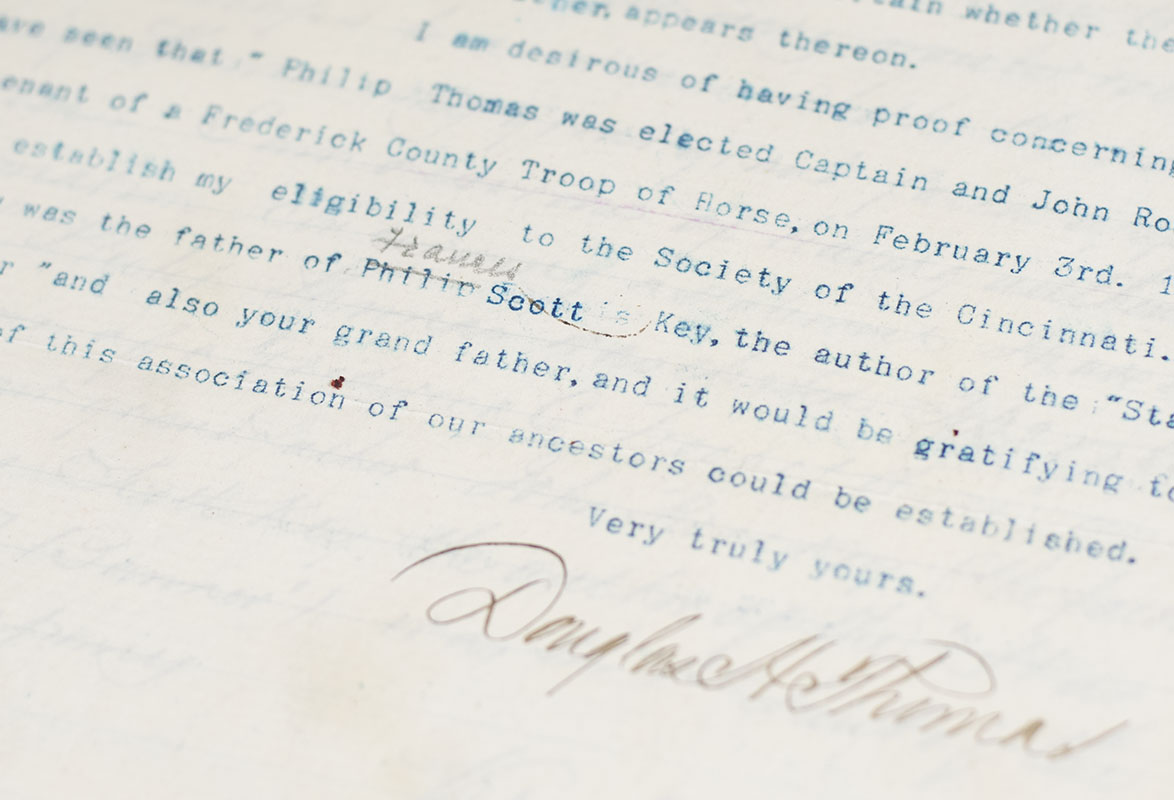 tain whether the
ther, appears thereon.
I am desirous of having proof concerning
ave seen that " Philip Thomas was elected Captain and John Ro
enant of a Frederick County Troop of Horse, on February 3rd. 1
establish my eligibility to the Society of the Cincinnati.
was the father of Philip Francis Scott is Key, the author of the "Sta
r "and also your grand father, and it would be gratifying to
of this association of our ancestors could be established.
Very truly yours.
Douglas H Thomas